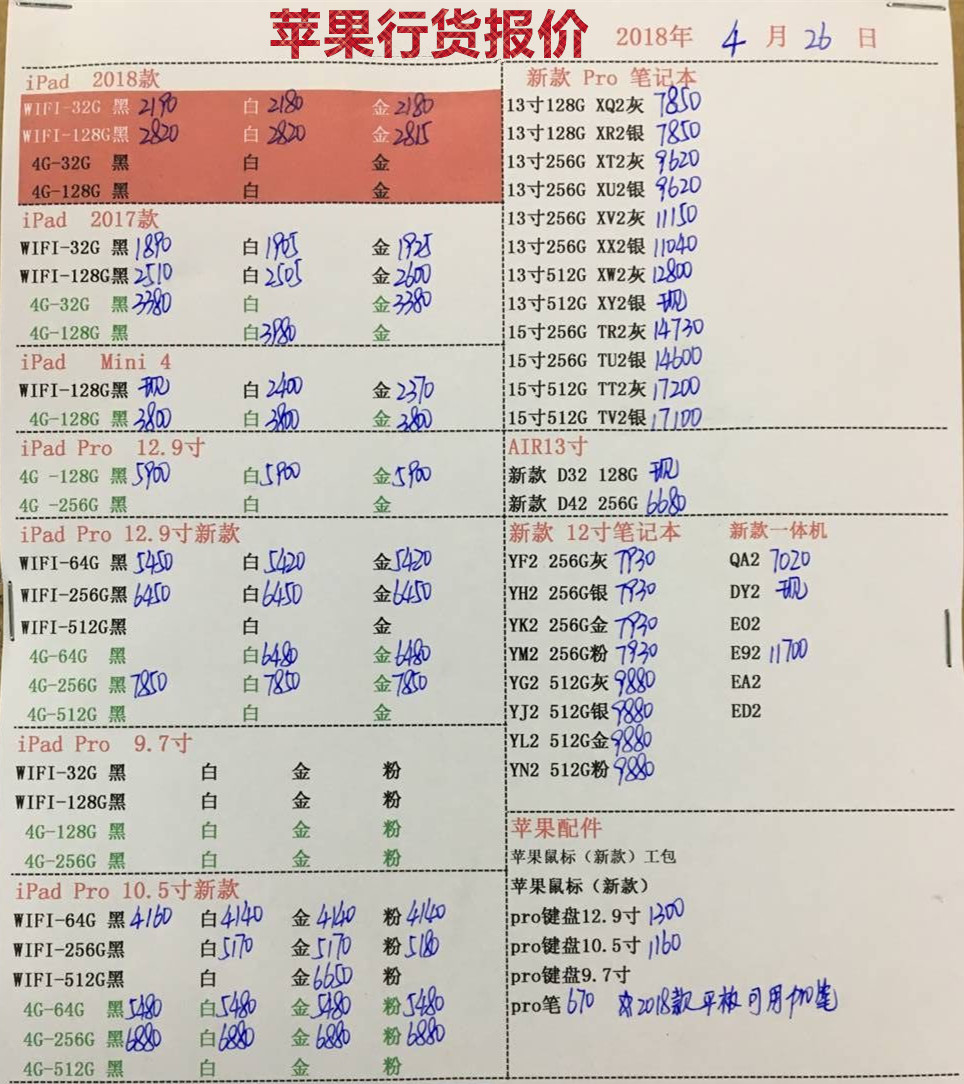 苹果行货报价 2018年 4 月 26 日
iPad 2018款
WIFI-32G 黑 2190 白 2180 金 2180
WIFI-128G黑 2820 白 2820 金 2815
4G-32G 黑 白 金
4G-128G 黑 白 金
iPad 2017款
WIFI-32G 黑 1890 白 1905 金 1925
WIFI-128G黑 2510 白 2505 金 2600
4G-32G 黑 3380 白 金 3380
4G-128G 黑 白 3980 金
iPad Mini 4
WIFI-128G黑 现 白 2400 金 2370
4G-128G 黑 3800 白 3800 金 3800
iPad Pro 12.9寸
4G -128G 黑 5900 白 5900 金 5900
4G -256G 黑 白 金
iPad Pro 12.9寸新款
WIFI-64G 黑 5450 白 5420 金 5420
WIFI-256G黑 6450 白 6450 金 6450
WIFI-512G黑 白 金
4G-64G 黑 白 6480 金 6480
4G-256G 黑 7850 白 7850 金 7850
4G-512G 黑 白 金
iPad Pro 9.7寸
WIFI-32G 黑 白 金 粉
WIFI-128G黑 白 金 粉
4G-128G 黑 白 金 粉
4G-256G 黑 白 金 粉
iPad Pro 10.5寸新款
WIFI-64G 黑 4160 白 4140 金 4140 粉 4140
WIFI-256G黑 白 5170 金 5170 粉 5180
WIFI-512G黑 白 金 6650 粉
4G-64G 黑 5480 白 5480 金 5480 粉 5480
4G-256G 黑 6880 白 6880 金 6880 粉 6880
4G-512G 黑 白 金 粉
新款 Pro 笔记本
13寸128G XQ2灰 7850
13寸128G XR2银 7850
13寸256G XT2灰 9620
13寸256G XU2银 9620
13寸256G XV2灰 11150
13寸256G XX2银 11040
13寸512G XW2灰 12800
13寸512G XY2银 现
15寸256G TR2灰 14730
15寸256G TU2银 14600
15寸512G TT2灰 17200
15寸512G TV2银 17100
AIR13寸
新款 D32 128G 现
新款 D42 256G 6680
新款 12寸笔记本
YF2 256G灰 7930
YH2 256G银 7930
YK2 256G金 7930
YM2 256G粉 7930
YG2 512G灰 9880
YJ2 512G银 9880
YL2 512G金 9880
YN2 512G粉 9880
新款一体机
QA2 7020
DY2 现
E02
E92 11700
EA2
ED2
苹果配件
苹果鼠标（新款）工包
苹果鼠标（新款）
pro键盘12.9寸 1300
pro键盘10.5寸 1160
pro键盘9.7寸
pro笔 670 ☆2018款平板可用pro笔